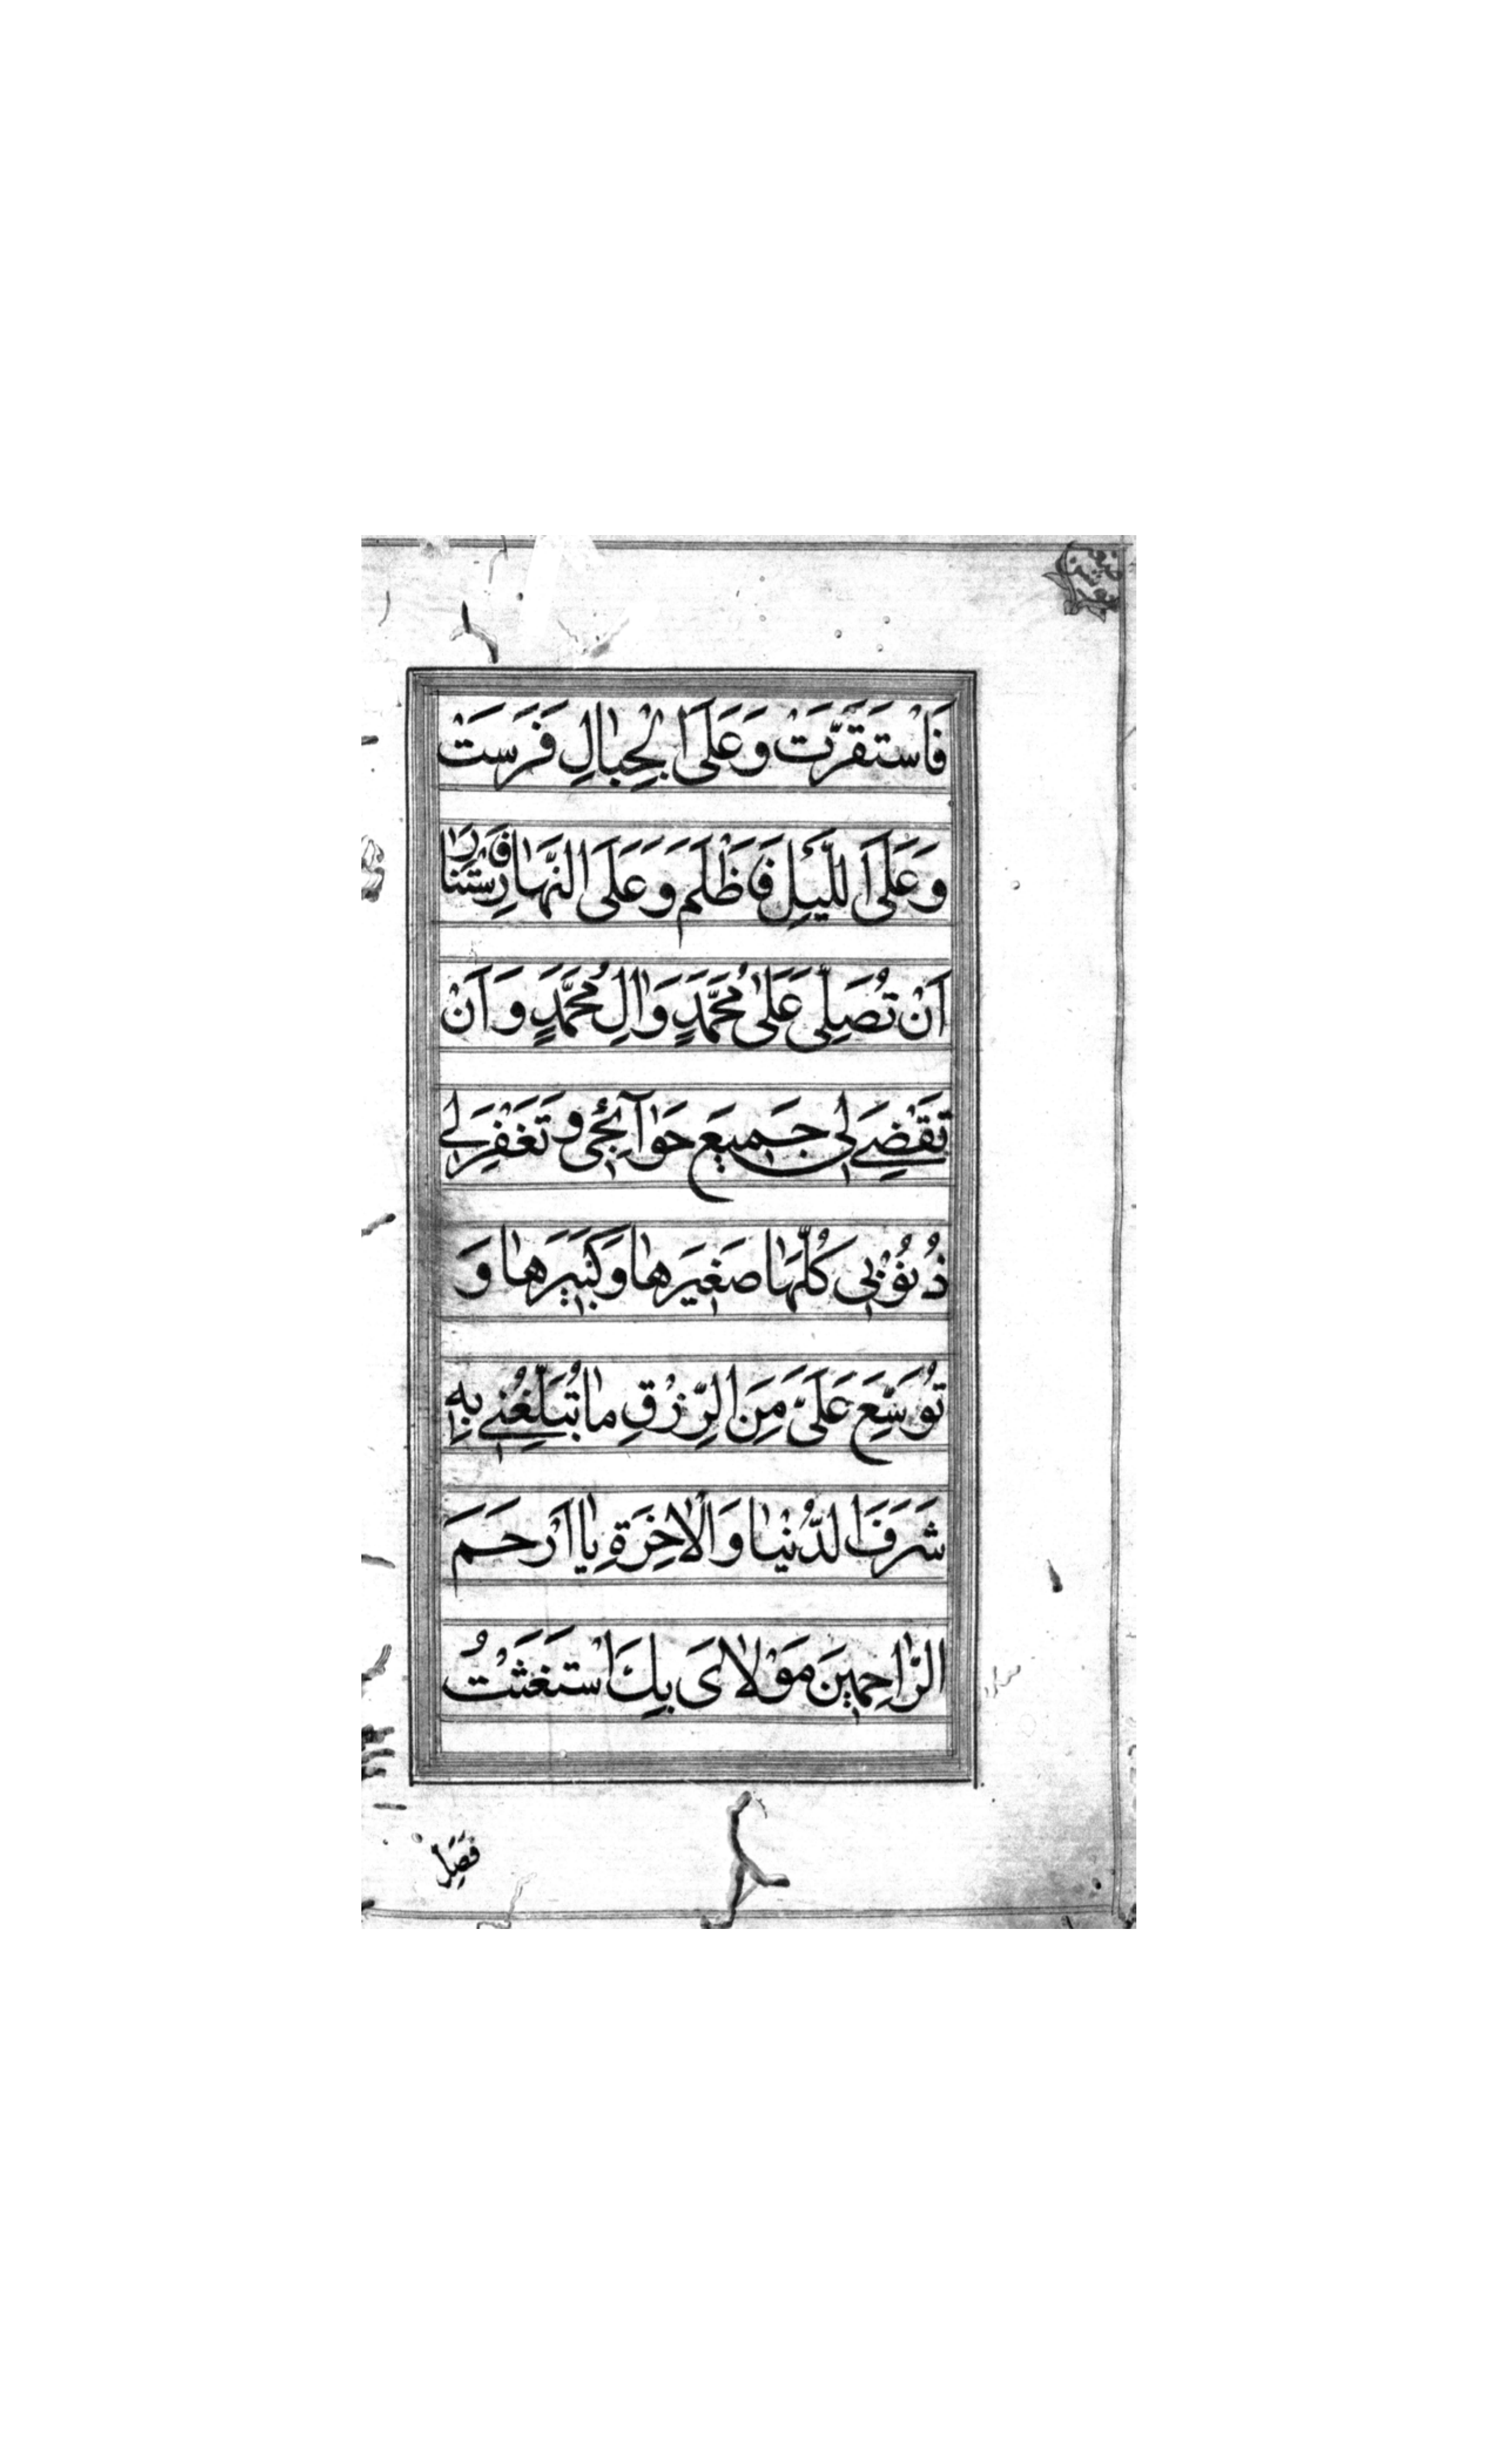 فَاسْتَقَرَّتْ وَعَلَى الْجِبٰالِ فَرَسَتْ
وَعَلَى اللَّيْلِ فَاَظْلَمَ وَعَلَى النَّهٰارِ فَاسْتَنٰارَ
اَنْ تُصَلِّيَ عَلىٰ مُحَمَّدٍ وَاٰلِ مُحَمَّدٍ وَ اَنْ
تَقْضِيَ لي جَميعَ حَوٰآئِجي وَ تَغْفِرَ لي
ذُنُوْبي كُلَّهٰا صَغيرَهٰا وَكَبيرَهٰا وَ
تُوَسِّعَ عَلَىَّ مِنَ الرِّزْقِ مٰا تُبَلِّغُني بِهِ
شَرَفَ الدُّنْيٰا وَالْاٰخِرَةِ يٰا اَرْحَمَ
الرّٰاحِمينَ مَوْلاٰىَ بِكَ اسْتَغَثْتُ
فَصَلِّ